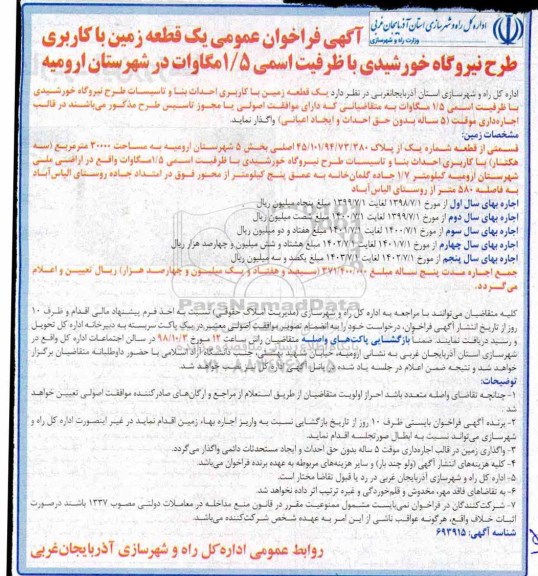 اداره کل راه و شهرسازی استان آذربایجان غربی
وزارت راه و شهرسازی
آگهی فراخوان عمومی یک قطعه زمین با کاربری
طرح نیروگاه خورشیدی با ظرفیت اسمی ۱/۵مگاوات در شهرستان ارومیه
اداره کل راه و شهرسازی استان آذربایجانغربی در نظر دارد یک قطعه زمین با کاربری احداث بنا و تاسیسات طرح نیروگاه خورشیدی
با ظرفیت اسمی ۱/۵ مگاوات به متقاضیانی که دارای موافقت اصولی یا مجوز تاسیس طرح مذکور می‌باشند در قالب
اجاره‌داری موقت (۵ ساله بدون حق احداث و ایجاد اعیانی) واگذار نماید.
مشخصات زمین:
قسمتی از قطعه شماره یک از پلاک ۴۵/۱۰۱/۹۴/۷۳/۳۸۰ اصلی بخش ۵ شهرستان ارومیه به مساحت ۳۰۰۰۰ مترمربع (سه
هکتار) با کاربری احداث بنا و تاسیسات طرح نیروگاه خورشیدی با ظرفیت اسمی ۱/۵مگاوات واقع در اراضی ملی
شهرستان ارومیه کیلومتر ۱/۷ جاده گلمان‌خانه به عمق پنج کیلومتر از محور فوق در امتداد جاده روستای الیاس‌آباد
به فاصله ۵۸۰ متر از روستای الیاس‌آباد
اجاره بهای سال اول از مورخ ۱۳۹۸/۷/۱ لغایت ۱۳۹۹/۷/۱ مبلغ پنجاه میلیون ریال
اجاره بهای سال دوم از مورخ ۱۳۹۹/۷/۱ لغایت ۱۴۰۰/۷/۱ مبلغ شصت میلیون ریال
اجاره بهای سال سوم از مورخ ۱۴۰۰/۷/۱ لغایت ۱۴۰۱/۷/۱ مبلغ هفتاد و دو میلیون ریال
اجاره بهای سال چهارم از مورخ ۱۴۰۱/۷/۱ لغایت ۱۴۰۲/۷/۱ مبلغ هشتاد و شش میلیون و چهارصد هزار ریال
اجاره بهای سال پنجم از مورخ ۱۴۰۲/۷/۱ لغایت ۱۴۰۳/۷/۱ مبلغ یکصد و سه میلیون ریال
جمع اجاره مدت پنج ساله مبلغ ۳۷۱/۴۰۰/۰۰۰ (سیصد و هفتاد و یک میلیون و چهارصد هزار) ریال تعیین و اعلام
می‌گردد.
ParsNamadData
کلیه متقاضیان می‌توانند با مراجعه به اداره کل راه و شهرسازی (مدیریت املاک حقوقی) نسبت به اخذ فرم پیشنهاد مالی اقدام و ظرف ۱۰
روز از تاریخ انتشار آگهی فراخوان، درخواست خود را به انضمام تصویر موافقت اصولی معتبر در یک پاکت سربسته به دبیرخانه اداره کل تحویل
و رسید دریافت نمایند. ضمناً بازگشایی پاکت‌های واصله متقاضیان راس ساعت ۱۲ مورخ ۹۸/۱۰/۳ در سالن اجتماعات اداره کل واقع در
شهرسازی استان آذربایجان غربی به نشانی ارومیه، خیابان شهید بهشتی، جنب دانشگاه آزاد اسلامی با حضور داوطلبانه متقاضیان برگزار
خواهد شد و نتیجه ضمن اعلام در جلسه یاد شده در پاسل آگهی اداره کل نیز نصب خواهد شد.
توضیحات:
۱- چنانچه تقاضای واصله متعدد باشد احراز اولویت متقاضیان از طریق استعلام از مراجع و ارگان‌های صادرکننده موافقت اصولی تعیین خواهد
شد
۲- برنده آگهی فراخوان بایستی ظرف ۱۰ روز از تاریخ بازگشایی نسبت به واریز اجاره بهاء زمین اقدام نماید در غیر اینصورت اداره کل راه و
شهرسازی می‌تواند نسبت به ابطال صورتجلسه اقدام نماید.
۳- واگذاری زمین در قالب اجاره‌داری موقت ۵ ساله بدون حق احداث و ایجاد مستحدثات دائمی واگذار می‌گردد.
۴- کلیه هزینه‌های انتشار آگهی (ولو چند بار) و سایر هزینه‌های مربوطه به عهده برنده فراخوان می‌باشد.
۵- اداره کل راه و شهرسازی آذربایجان غربی در رد یا قبول تقاضا مختار است.
۶- به تقاضاهای فاقد مهر، مخدوش و قلم‌خوردگی و غیره ترتیب اثر داده نخواهد شد.
۷- شرکت‌کنندگان در فراخوان نمی‌بایست مشمول ممنوعیت مقرر در قانون منع مداخله در معاملات دولتی مصوب ۱۳۳۷ باشند درصورت
اثبات خلاف واقع، هرگونه عواقب ناشی از این امر به عهده شخص شرکت‌کننده می‌باشد.
شناسه آگهی: ۶۹۳۹۱۵
روابط عمومی اداره‌کل راه و شهرسازی آذربایجان‌غربی